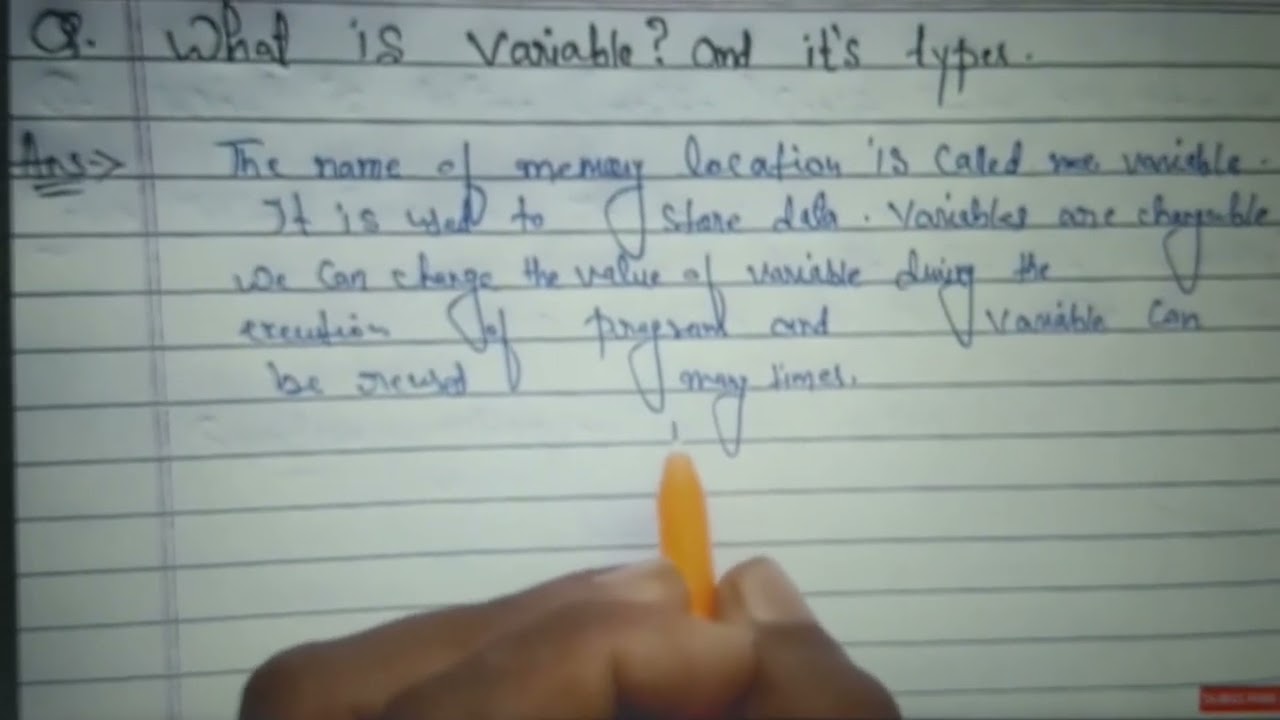 Q. What is variable? and it's types.
Ans-> The name of memory location is called variable.
It is used to store data. Variables are changeable
we can change the value of variable during the
execution of program and variable can
be reused many times.
SUBSCRIBE